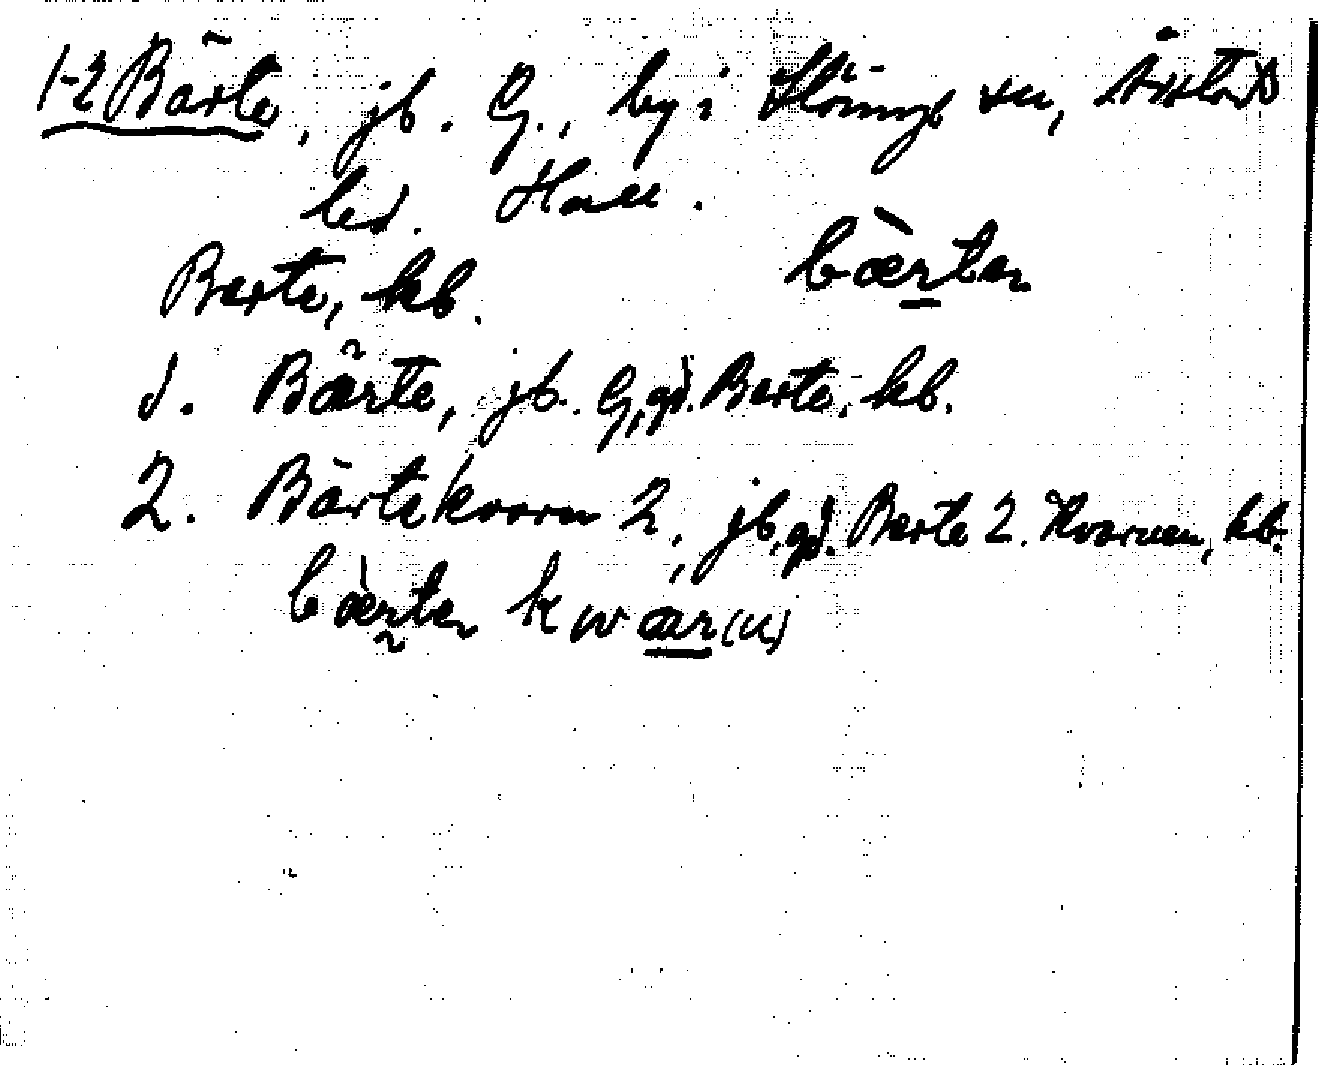 1-2 Bärte, jb. G., by i Slöinge sn, Årstads
hd. Hall.
Berte, kb. bæ̀rten
1. Bärte, jb. G, gd. Berte, kb.
2. Bärtekvarn 2, jb, gd. Berte 2. Kvarnen, kb.
bæ̀rten kwær(n)